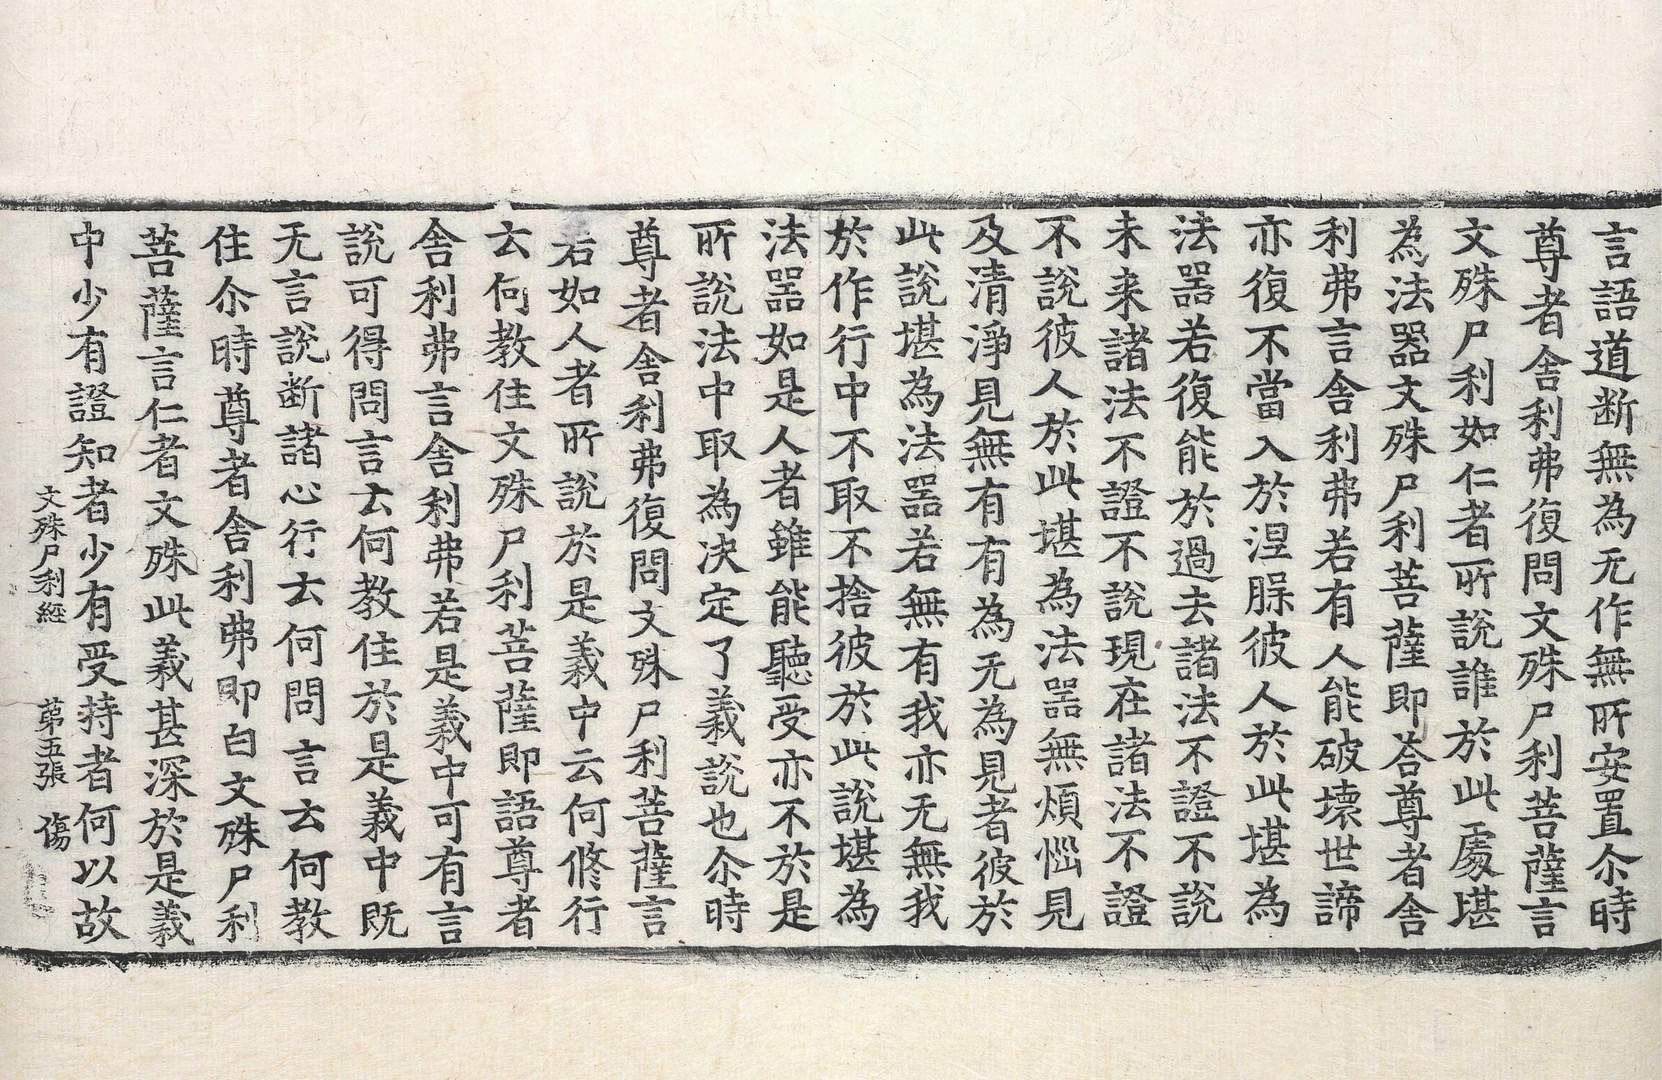 言語道断無為无作無所安置尒時
尊者舍利弗復問文殊尸利菩薩言
文殊尸利如仁者所說誰於此處堪
為法器文殊尸利菩薩即荅尊者舍
利弗言舍利弗若有人能破壞世諦
亦復不當入於涅槃彼人於此堪為
法器若復能於過去諸法不證不說
未来諸法不證不說現在諸法不證
不說彼人於此堪為法器無煩惱見
及清淨見無有有為无為見者彼於
此說堪為法器若無有我亦无無我
於作行中不取不捨彼於此說堪為
法器如是人者雖能聽受亦不於是
所說法中取為决定了義說也尒時
尊者舍利弗復問文殊尸利菩薩言
若如人者所說於是義中云何修行
云何教住文殊尸利菩薩即語尊者
舍利弗言舍利弗若是義中可有言
說可得問言云何教住於是義中既
无言說断諸心行云何問言云何教
住尒時尊者舍利弗即白文殊尸利
菩薩言仁者文殊此義甚深於是義
中少有證知者少有受持者何以故
文殊尸利經 第五張 傷